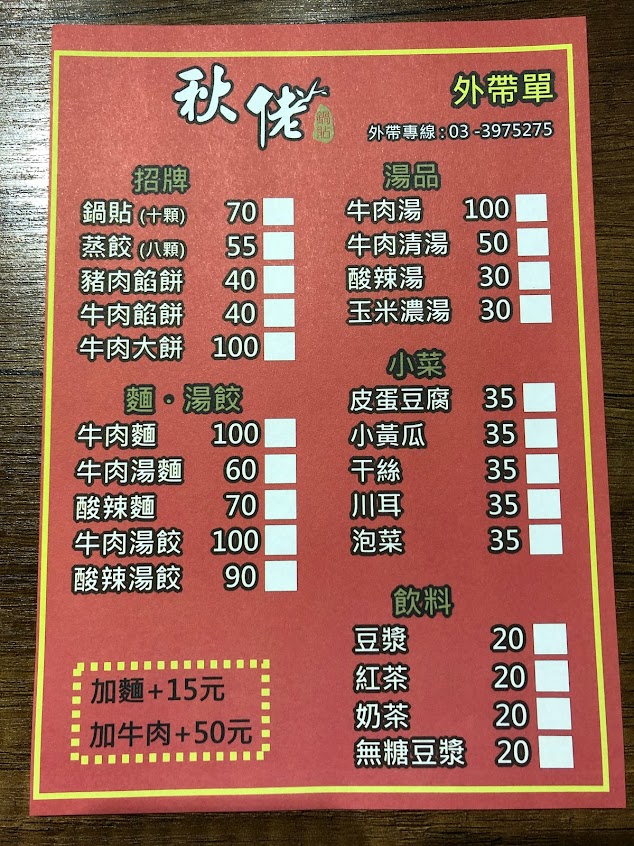 秋佬
鍋貼
外帶單
外帶專線:03-3975275
招牌
鍋貼(十顆) 70
蒸餃(八顆) 55
豬肉餡餅 40
牛肉餡餅 40
牛肉大餅 100
麵・湯餃
牛肉麵 100
牛肉湯麵 60
酸辣麵 70
牛肉湯餃 100
酸辣湯餃 90
加麵+15元
加牛肉+50元
湯品
牛肉湯 100
牛肉清湯 50
酸辣湯 30
玉米濃湯 30
小菜
皮蛋豆腐 35
小黃瓜 35
干絲 35
川耳 35
泡菜 35
飲料
豆漿 20
紅茶 20
奶茶 20
無糖豆漿 20